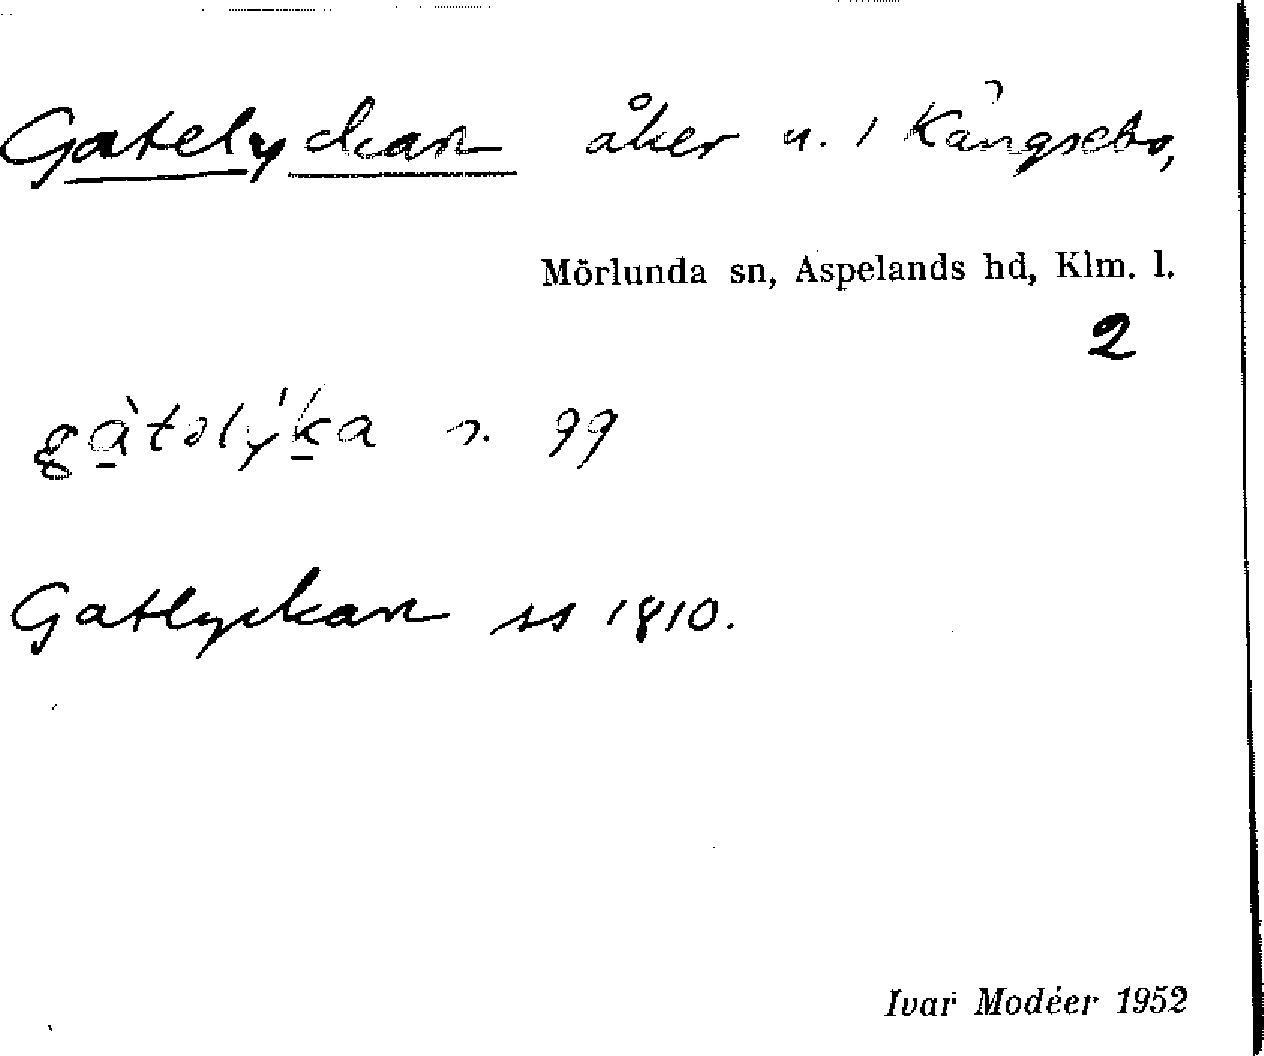 Gatelyckan åker n. 1 Kångsebo,
Mörlunda sn, Aspelands hd, Klm. l.
2
gàtəlýka s. 99
Gatlyckan ss 1810.
Ivar Modéer 1952